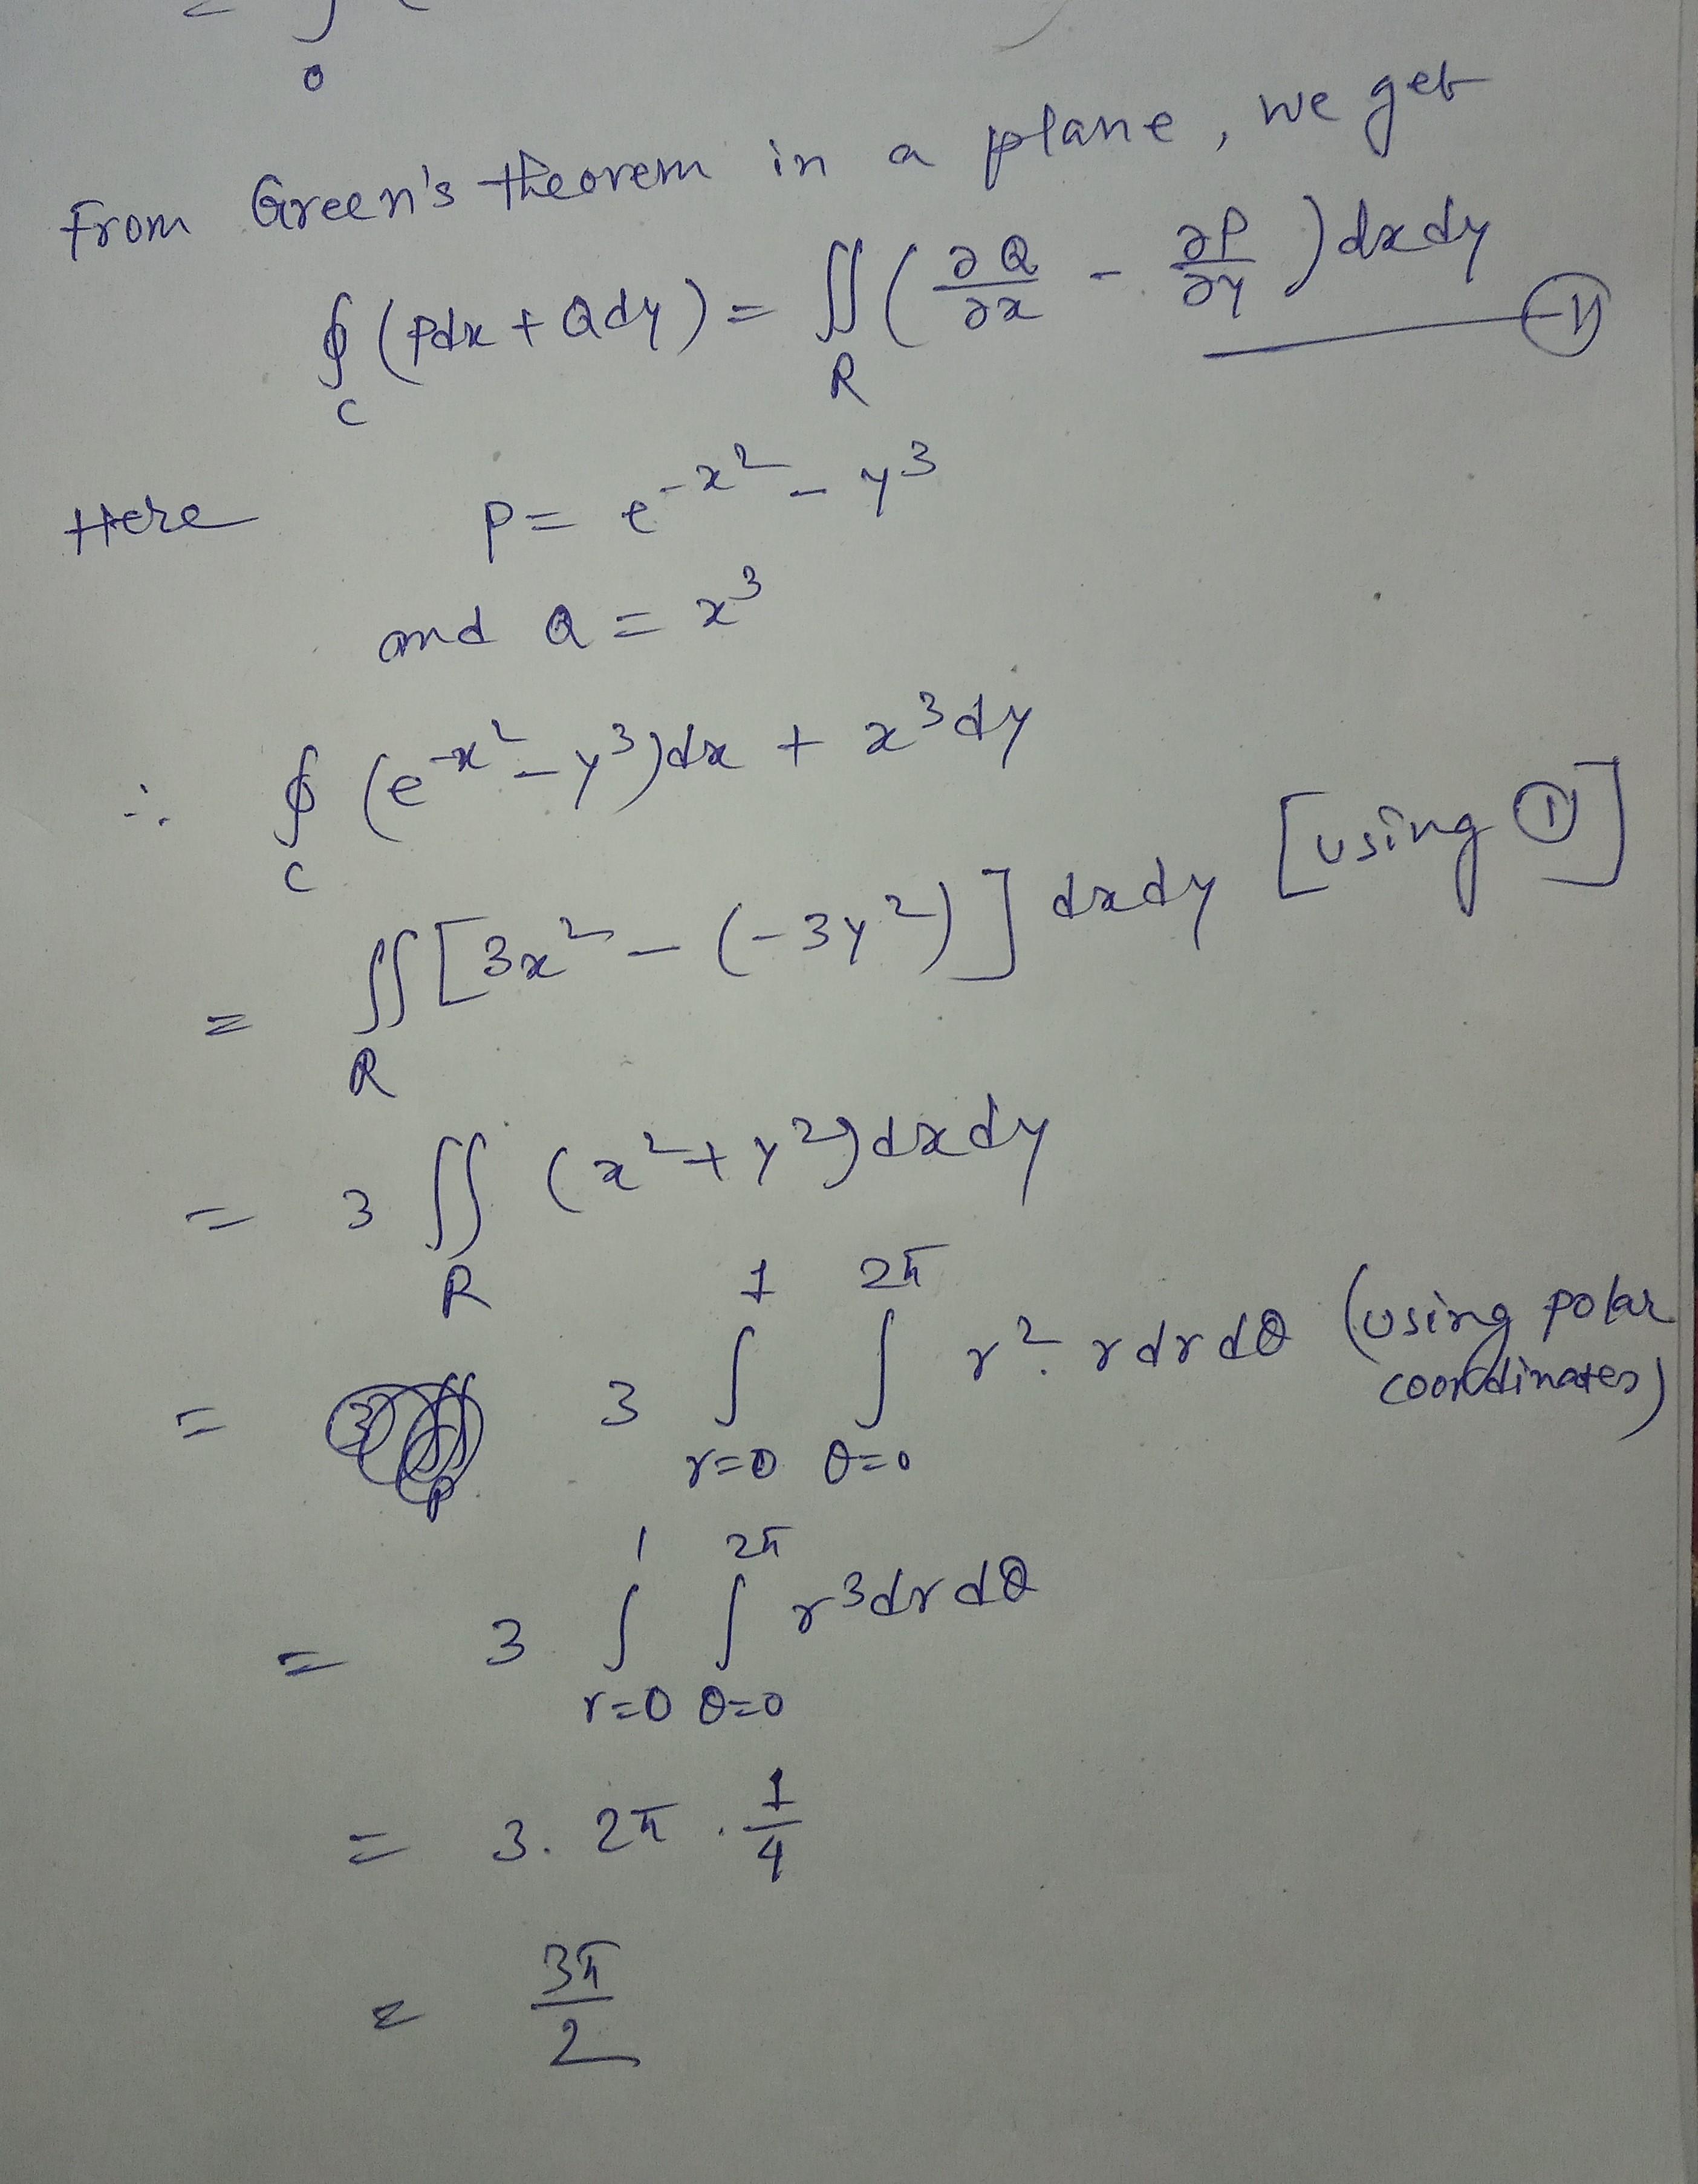 = ∫
0
From Green's theorem in a plane, we get
∮ (Pdx + Qdy) = ∬ ( ∂Q/∂x - ∂P/∂y ) dxdy ——— (1)
C R
Here P = e^{-x^2} - y^3
and Q = x^3
∴ ∮ (e^{-x^2} - y^3)dx + x^3dy
C
= ∬ [3x^2 - (-3y^2)] dxdy [using (1)]
R
= 3 ∬ (x^2+y^2)dxdy
R
1 2π
= 3 ∫ ∫ r^2. rdrdθ (using polar
coordinates)
r=0 θ=0
1 2π
= 3 ∫ ∫ r^3drdθ
r=0 θ=0
= 3. 2π . 1/4
= 3π/2